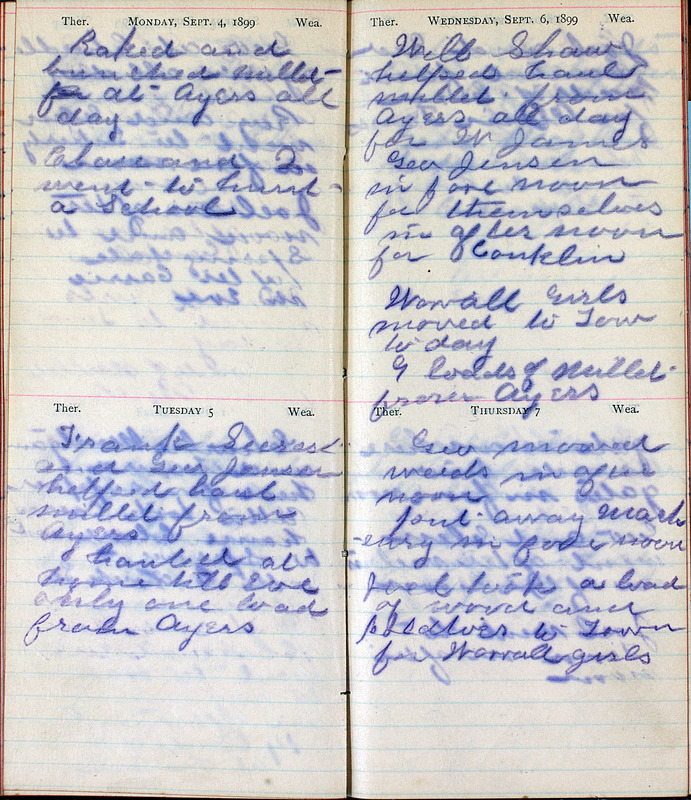 Ther. MONDAY, SEPT. 4, 1899 Wea.
Raked and
bunched millet
at Ayers all
day
Chase and I
went to hunt
a School
Ther. TUESDAY 5 Wea.
Frank
and Geo Jensen
helped haul
millet from
Ayers
hauled at
home till Eve
only one load
from Ayers
Ther. WEDNESDAY, SEPT. 6, 1899 Wea.
Will Shaw
helped haul
millet from
Ayers all day
for W James
Geo Jensen
in fore noon
for themselves
in after noon
for Conklin
Worrall Girls
moved to Tow
to day
9 loads of millet
from Ayers
Ther. THURSDAY 7 Wea.
Geo mowed
weeds in after
noon
put away Mach
enry in fore noon
Joel took a load
of wood and
to Town
for Worrall girls